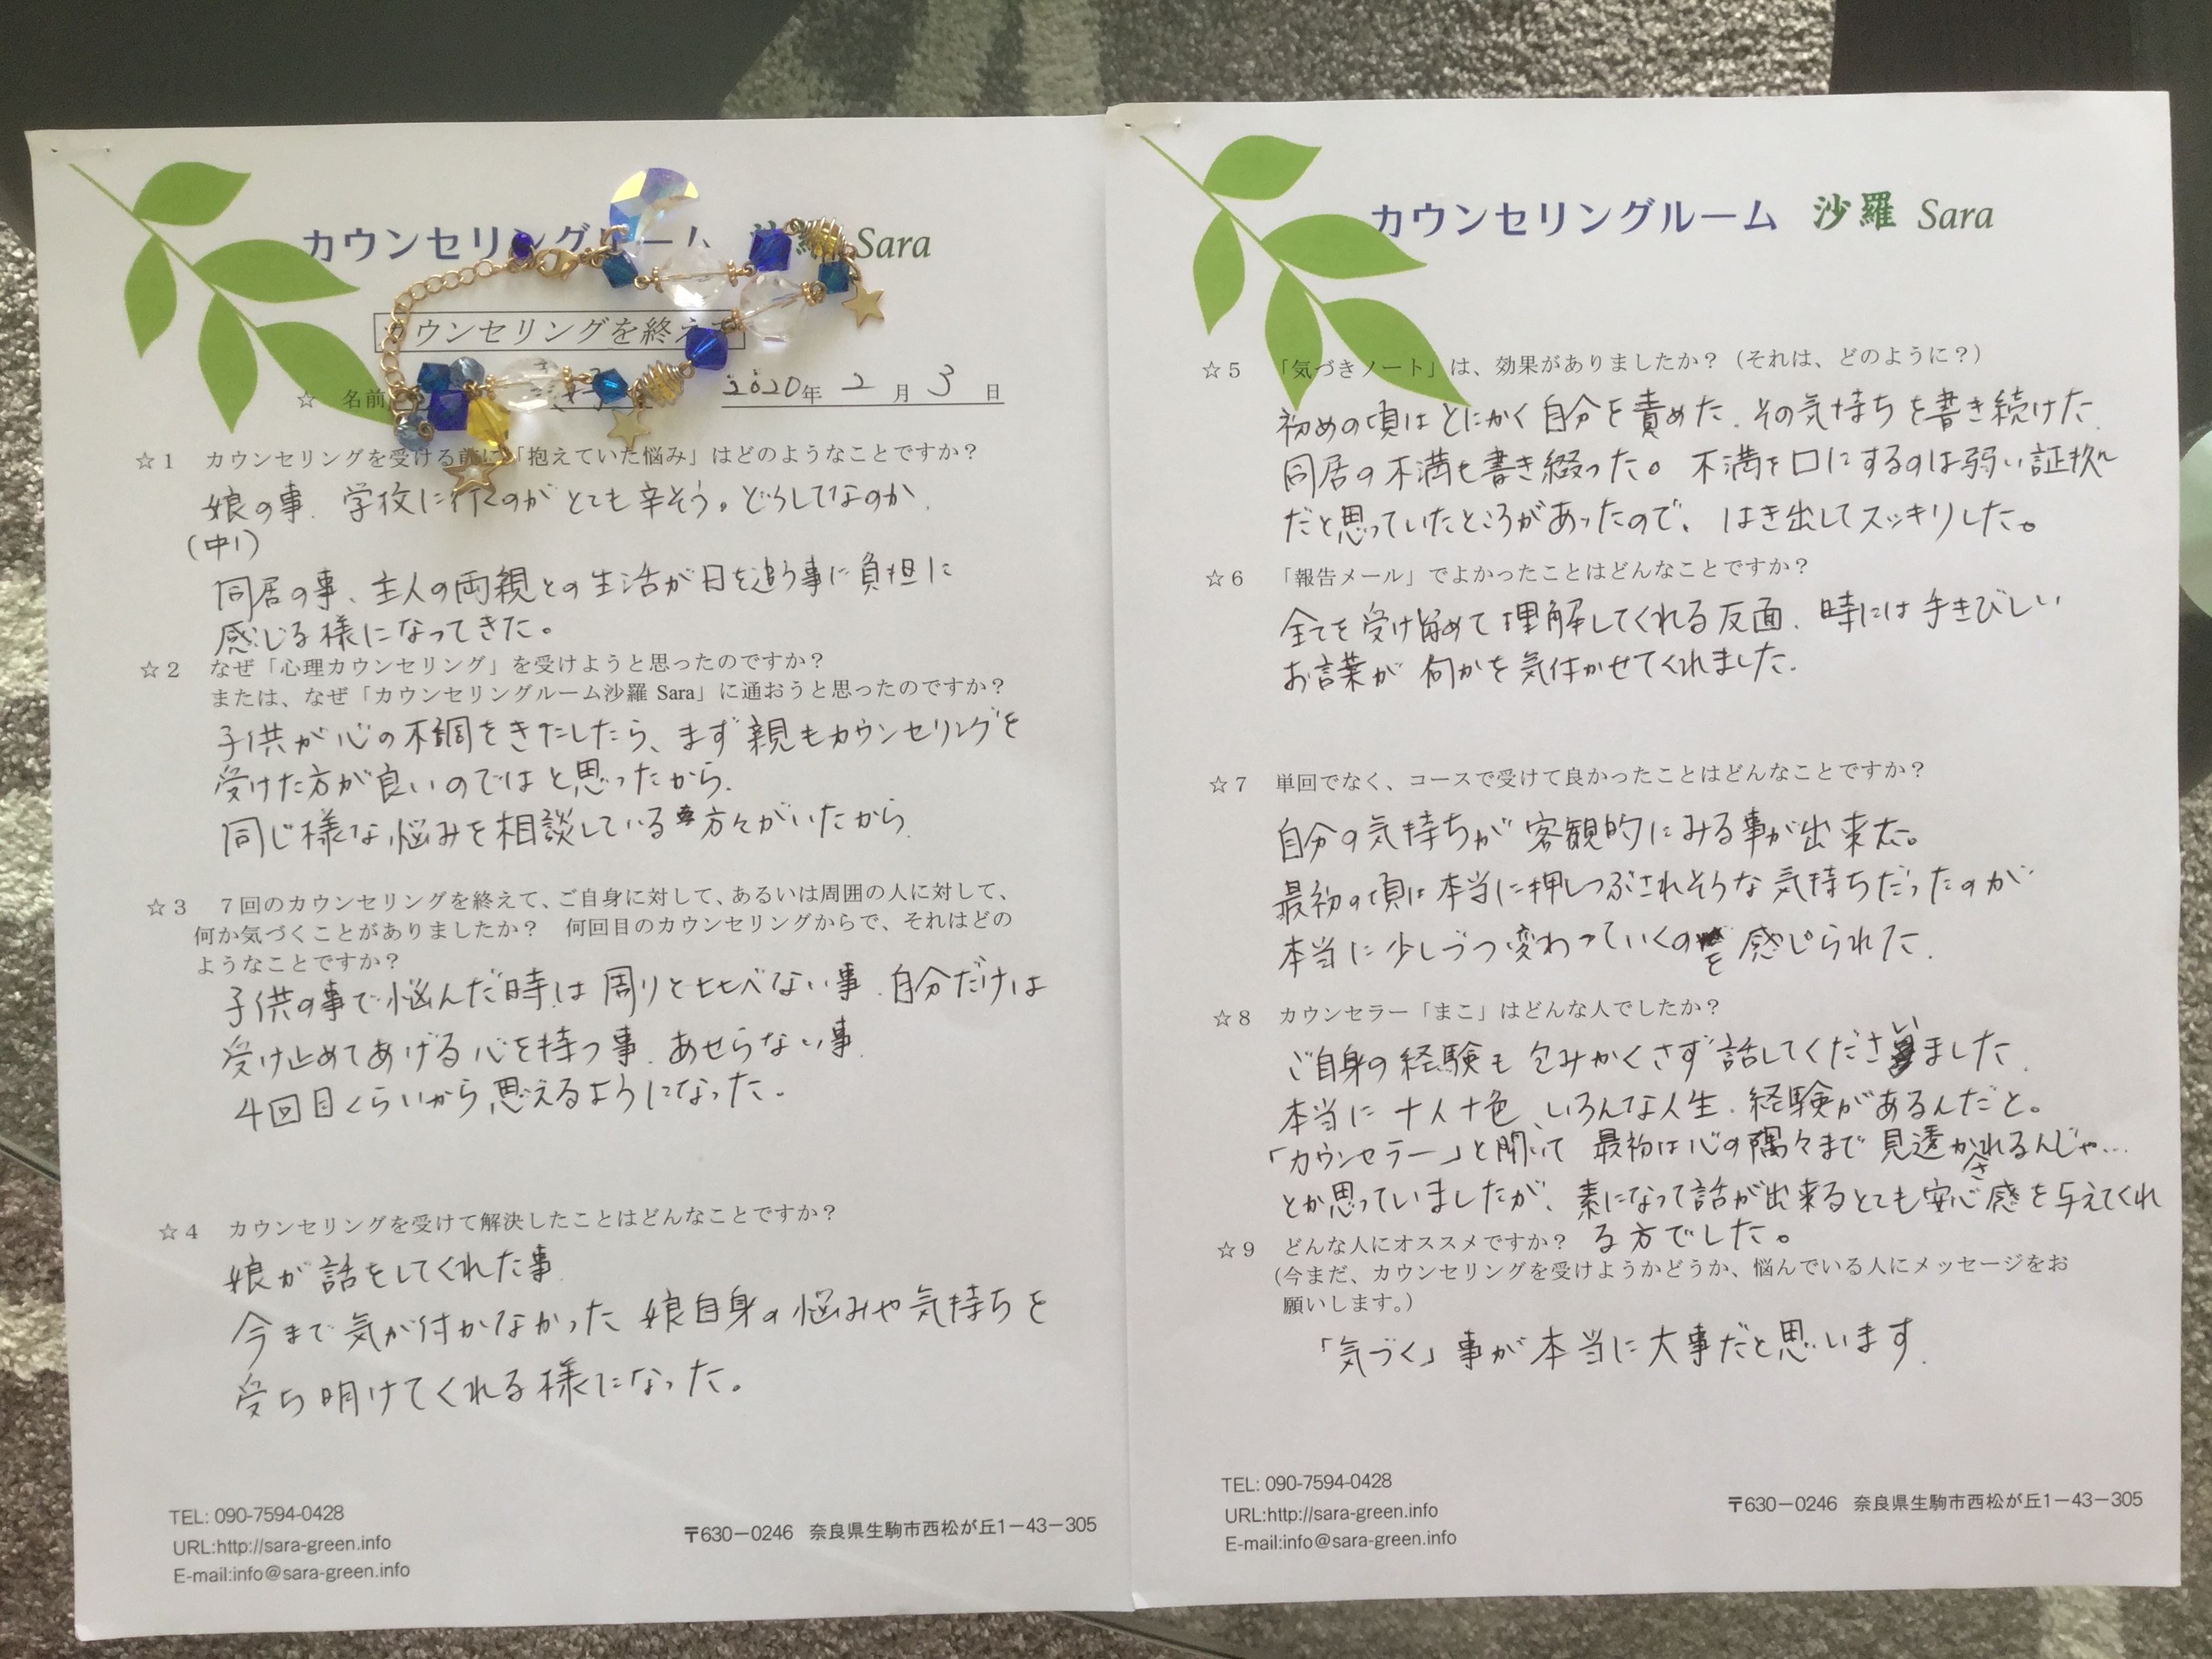 カウンセリングルーム 沙羅 Sara
カウンセリングを終えて
☆ 名前 2020年 2月 3日
☆1 カウンセリングを受ける前に「抱えていた悩み」はどのようなことですか?
娘の事、学校に行くのがとても辛そう。どうしてなのか、
(中1)
同居の事、主人の両親との生活が日を追う事に負担に
感じる様になってきた。
☆2 なぜ「心理カウンセリング」を受けようと思ったのですか?
または、なぜ「カウンセリングルーム沙羅 Sara」に通おうと思ったのですか?
子供が心の不調をきたしたら、まず親もカウンセリングを
受けた方が良いのではと思ったから、
同じ様な悩みを相談している方々がいたから、
☆3 7回のカウンセリングを終えて、ご自身に対して、あるいは周囲の人に対して、
何か気づくことがありましたか? 何回目のカウンセリングからで、それはどの
ようなことですか?
子供の事で悩んだ時は周りと比べない事、自分だけは
受け止めてあげる心を持つ事、あせらない事、
4回目くらいから思えるようになった。
☆4 カウンセリングを受けて解決したことはどんなことですか?
娘が話をしてくれた事、
今まで気が付かなかった娘自身の悩みや気持ちを
受ち明けてくれる様になった。
TEL: 090-7594-0428
URL:http://sara-green.info
E-mail:info@sara-green.info
〒630-0246 奈良県生駒市西松が丘1-43-305
カウンセリングルーム 沙羅 Sara
☆5 「気づきノート」は、効果がありましたか?(それは、どのように?)
初めの頃はとにかく自分を責めた、その気持ちを書き続けた、
同居の不満も書き綴った。不満を口にするのは弱い証拠
だと思っていたところがあったので、はき出してスッキリした。
☆6 「報告メール」でよかったことはどんなことですか?
全てを受け留めて理解してくれる反面、時には手きびしい
お言葉が何かを気付かせてくれました。
☆7 単回でなく、コースで受けて良かったことはどんなことですか?
自分の気持ちが客観的にみる事が出来た。
最初の頃は本当に押しつぶされそうな気持ちだったのが
本当に少しづつ変わっていくのを感じられた。
☆8 カウンセラー「まこ」はどんな人でしたか?
ご自身の経験も包みかくさず話してくださいました、
本当に十人十色、いろんな人生、経験があるんだと。
「カウンセラー」と聞いて最初は心の隅々まで見透かされるんじゃ…
とか思っていましたが、素になって話が出来るとても安心感を与えてくれ
る方でした。
☆9 どんな人にオススメですか?
(今まだ、カウンセリングを受けようかどうか、悩んでいる人にメッセージをお
願いします。)
「気づく」事が本当に大事だと思います。
TEL: 090-7594-0428
URL:http://sara-green.info
E-mail:info@sara-green.info
〒630-0246 奈良県生駒市西松が丘1-43-305